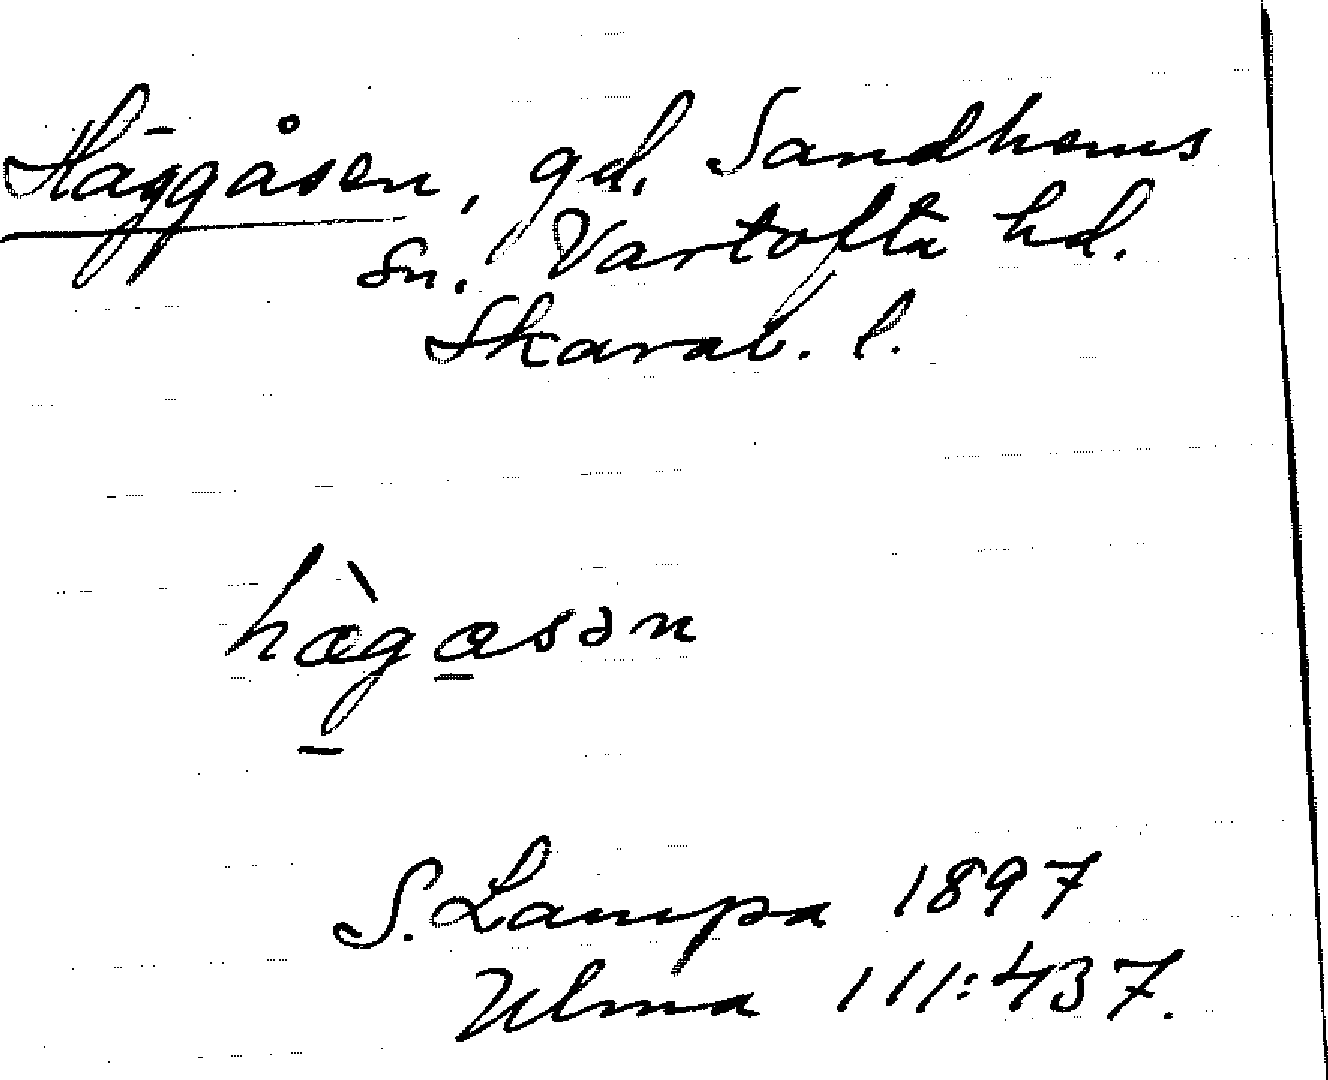 Häggåsen, gd, Sandhems
sn. Vartofta hd.
Skarab. l.
hæ̀gasən
S. Lampa 1897
Ulma 111:437.